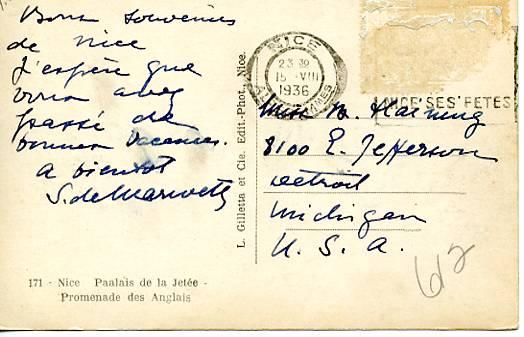 Bons souvenirs
de Nice
J'espère que
vous avez
passé de
bonnes vacances.
A bientôt
S. de
171 - Nice Paalais de la Jetée -
Promenade des Anglais
L. Gilletta et Cie. Edit.-Phot., Nice.
NICE
23 30
15 · VIII
1936
ALPES MARITIMES
NICE SES FETES
Miss
8100 E. Jefferson
Detroit
Michigan
U. S. A.